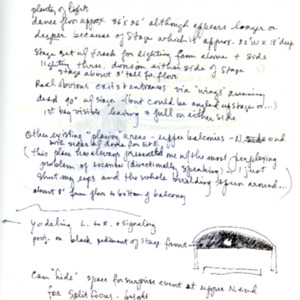 plenty of lights
dance floor approx. 36' x 36' although appears longer or
deeper because of stage which is approx. 32' W x 18' deep
Stage set w/ track for lighting from above & side
lighting thru. doors on either side of stage
stage about 3' tall fr floor
Real obvious exits & entrances via "wings" running
dead 90° w/ stage - but could be angled up stage or...)
1st bay visible leaving a full on either side
Other existing "playing" areas - upper balconies - N. side end
(this place has always presented me w/ the most perplexing
problem of location (directionally speaking) ... I just
shut my eyes and the whole building spun around...
about 8' from floor to bottom of balcony
yodeling L. to R. & signaling
proj. on black pediment of stage front
Can "hide" space for surprise event at upper N. end
for split focus - bright